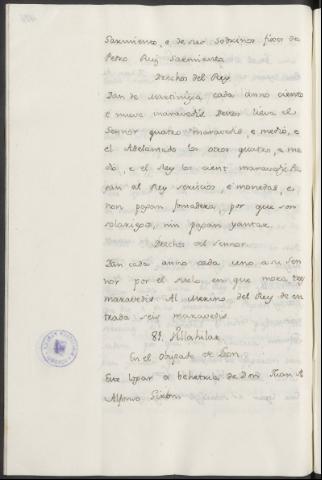 Sarmiento, e de sus sobrinos fijos de
Pedro Ruiz Sarmiento
Derechos del Rey
Dan de Martiniega cada anno ciento
e nueve maravedis Destos lieva el
Sennor quatro maravedis, e medio, e
el Adelantado los otros quatro, e me
dio, e el Rey los cient maravedis Pa
gan al Rey servicios, e monedas, e
non pagan fonsadera, por que son
solariegos, nin pagan yantar.
Derechos del Sennor
Dan cada anno cada uno a su sen
nor por el suelo, en que mora tres
maravedis Al Merino, del Rey de en
trada seis maravedis
81. Villahilar
En el Obispado de Leon
Este logar es behetria de Don Juan
Alfonso Girón